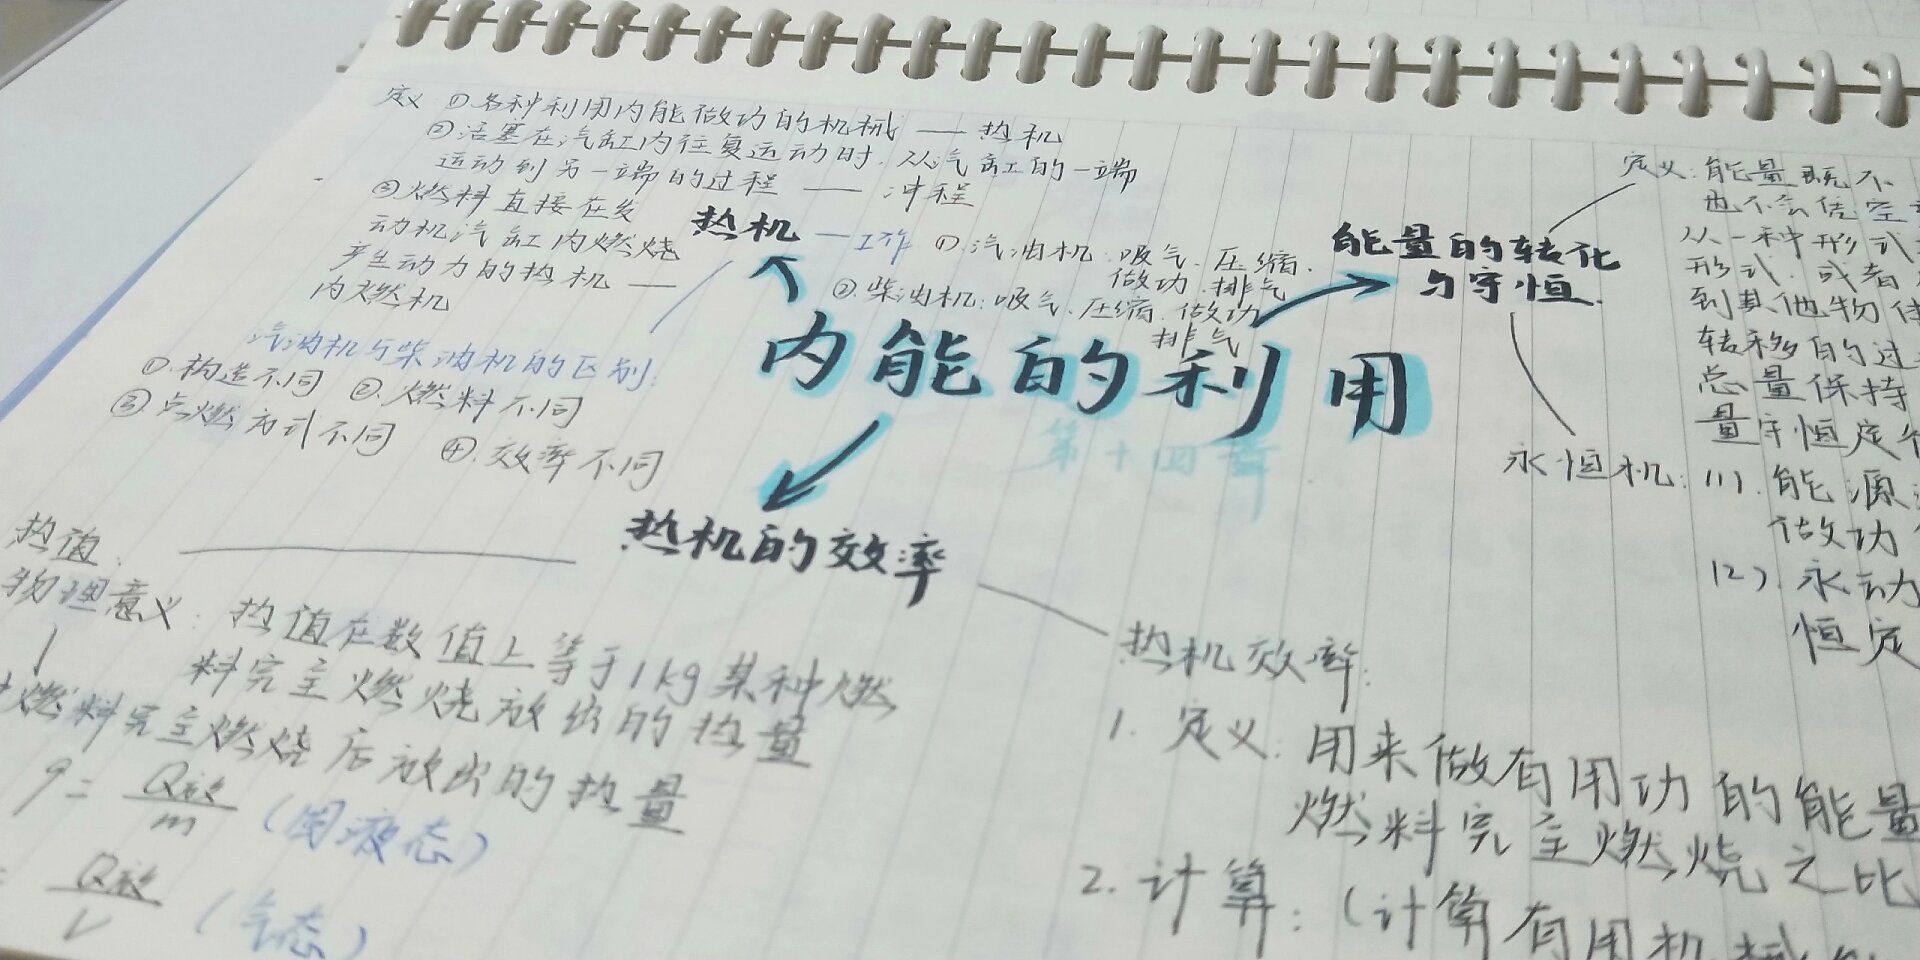 定义:①各种利用内能做功的机械 —— 热机
②活塞在汽缸内往复运动时,从汽缸的一端
运动到另一端的过程 —— 冲程
③燃料直接在发
动机汽缸内燃烧
产生动力的热机 ——
内燃机
热机 — 工作 ①.汽油机:吸气.压缩.
做功.排气
②.柴油机:吸气.压缩.做功
排气
汽油机与柴油机的区别:
①.构造不同 ②.燃料不同
③.点燃方式不同 ④.效率不同
内能的利用
第十四章
能量的转化
与守恒.
定义:能量既不
也不会凭空
从一种形式
形式.或者
到其他物体
转移的过
总量保持
量守恒定
永恒机:(1).能源
做功
(2).永动
恒定
热机的效率
热值:
物理意义:热值在数值上等于1kg某种燃
料完全燃烧放出的热量
燃料完全燃烧后放出的热量
q=Q放/m (固液态)
=Q放/V (气态)
热机效率:
1.定义:用来做有用功的能量
燃料完全燃烧之比
2.计算:(计算有用机械